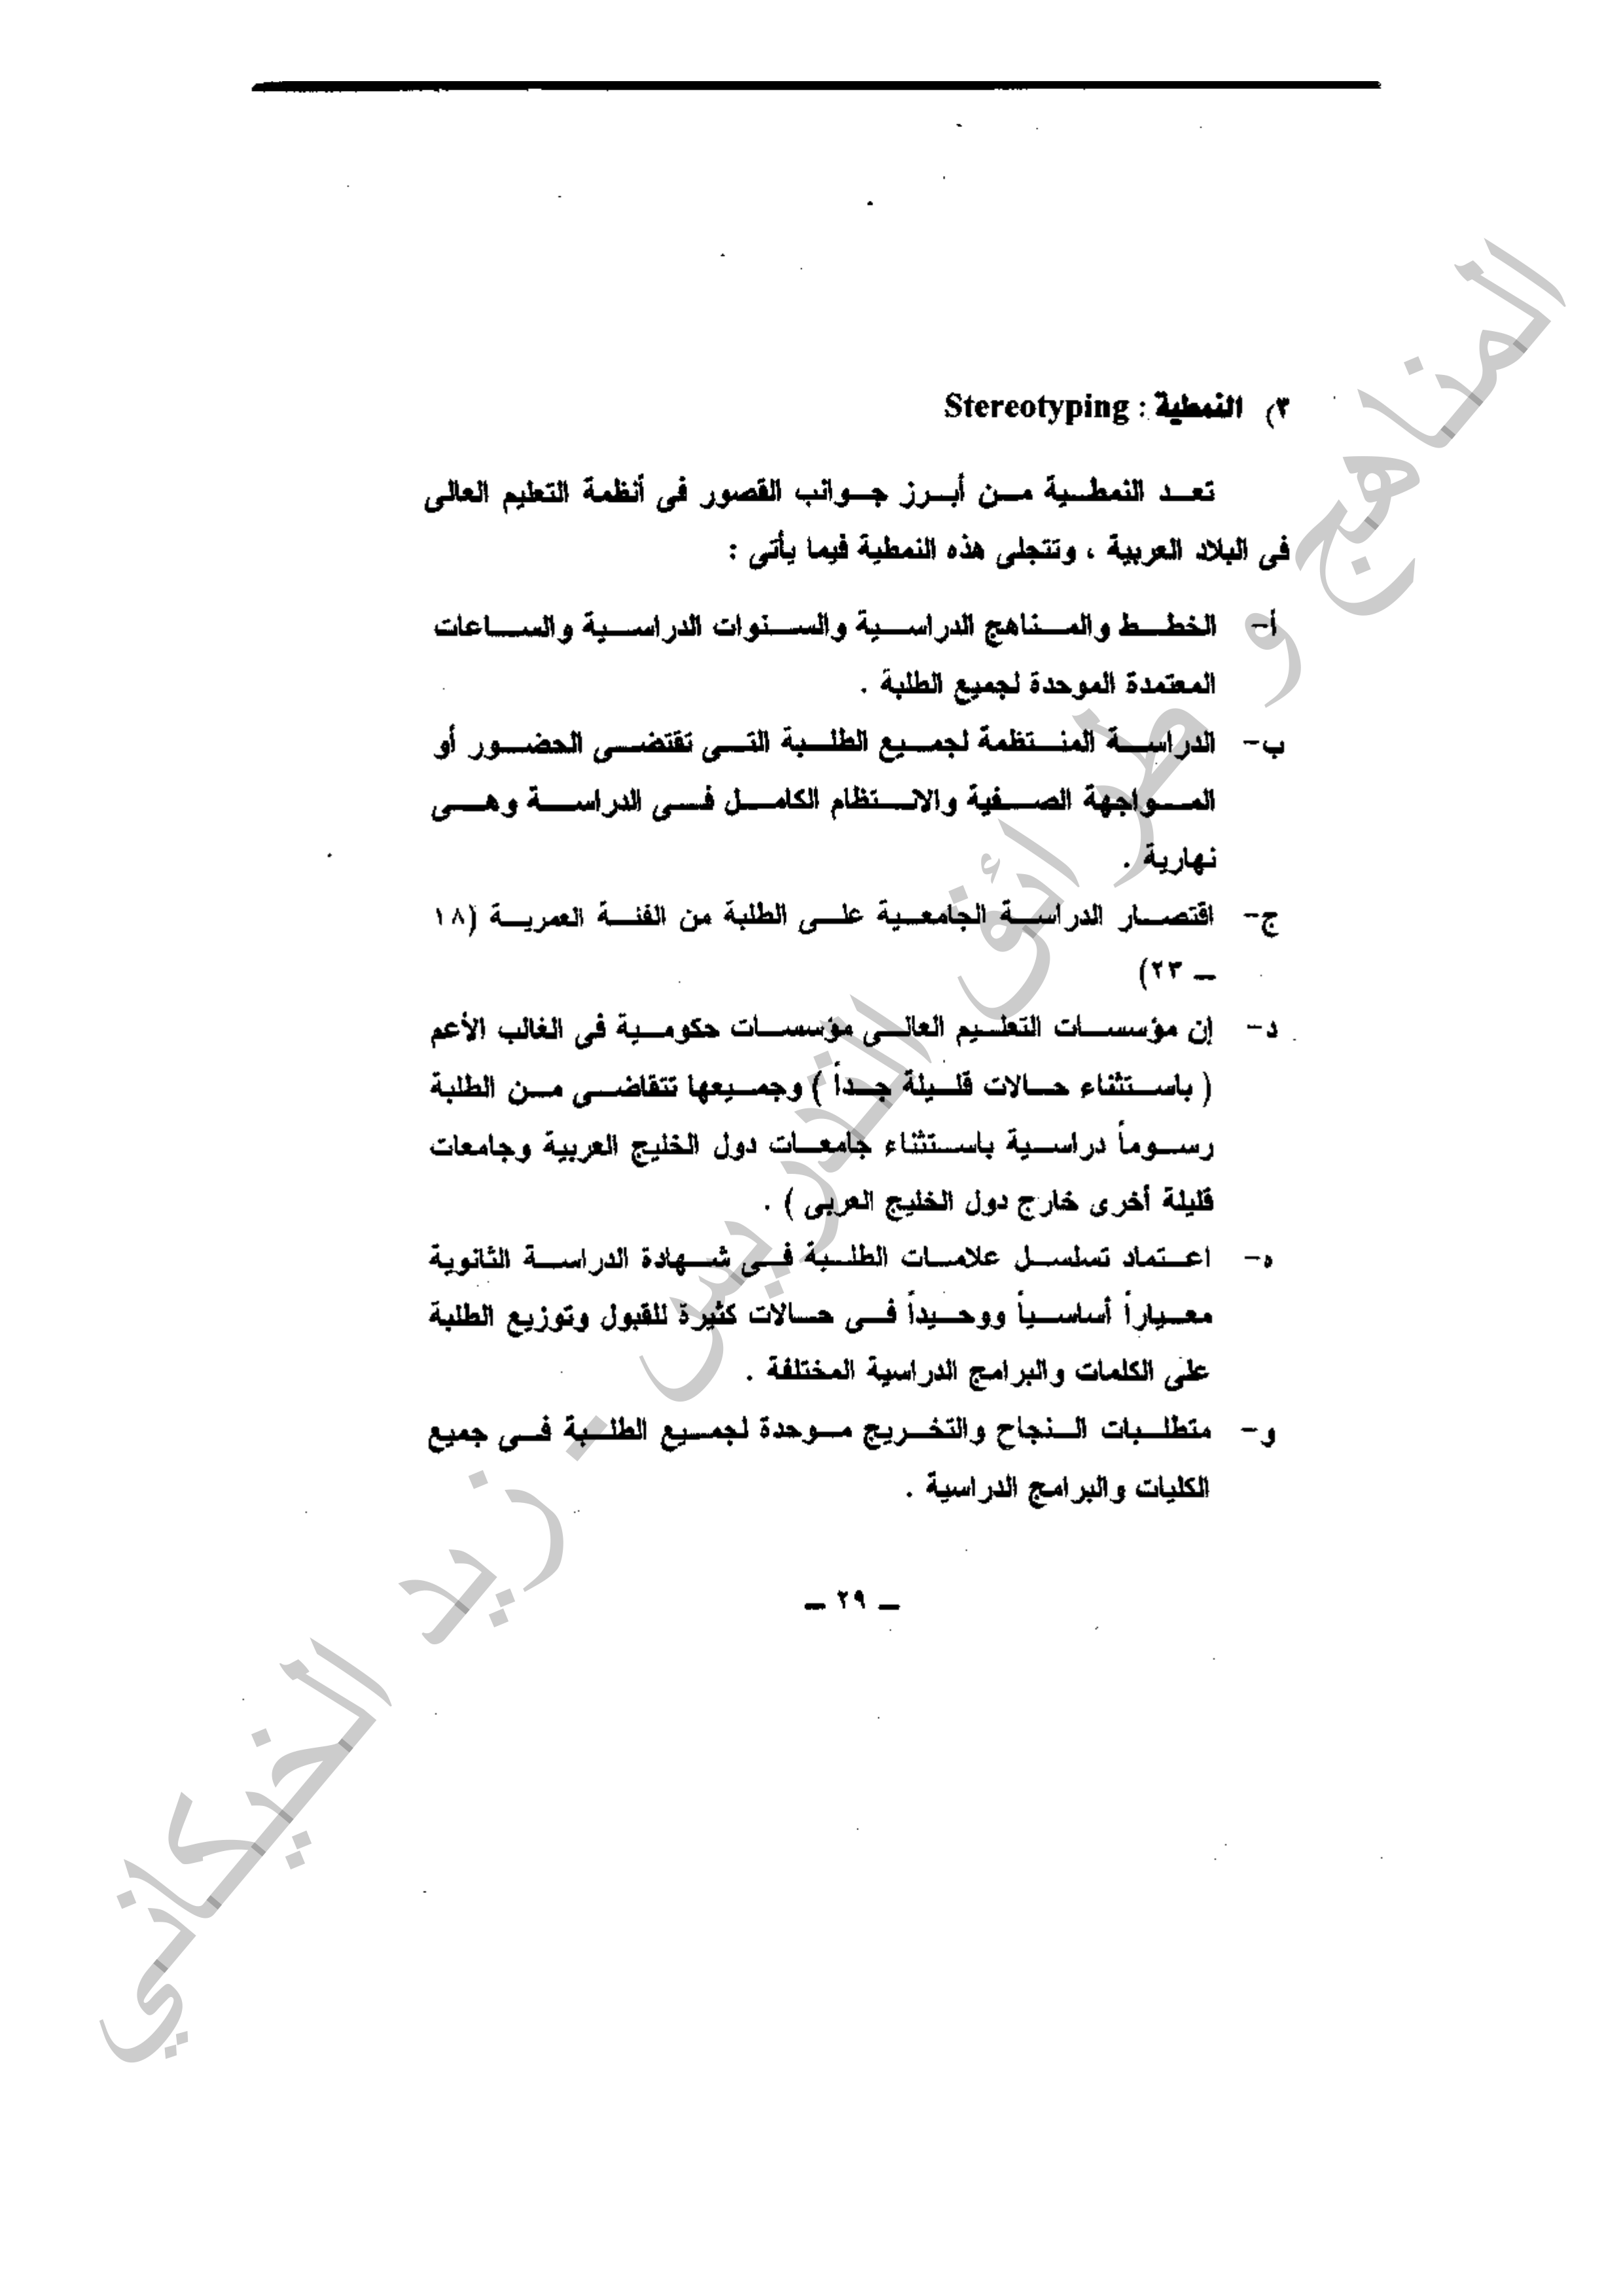 ٣) النمطية : Stereotyping
تعد النمطية من أبرز جوانب القصور فى أنظمة التعليم العالى
فى البلاد العربية ، وتتجلى هذه النمطية فيما يأتى :
أ- الخطط والمناهج الدراسية والسنوات الدراسية والساعات
المعتمدة الموحدة لجميع الطلبة .
ب- الدراسة المنتظمة لجميع الطلبة التى تقتضى الحضور أو
المواجهة الصفية والانتظام الكامل فى الدراسة وهى
نهارية .
ج- اقتصار الدراسة الجامعية على الطلبة من الفئة العمرية (١٨
– ٢٣)
د- إن مؤسسات التعليم العالى مؤسسات حكومية فى الغالب الأعم
( باستثناء حالات قليلة جداً ) وجميعها تتقاضى من الطلبة
رسوماً دراسية باستثناء جامعات دول الخليج العربية وجامعات
قليلة أخرى خارج دول الخليج العربى ) .
ه- اعتماد تسلسل علامات الطلبة فى شهادة الدراسة الثانوية
معياراً أساسياً ووحيداً فى حالات كثيرة للقبول وتوزيع الطلبة
على الكلمات والبرامج الدراسية المختلفة .
و- متطلبات النجاح والتخريج موحدة لجميع الطلبة فى جميع
الكليات والبرامج الدراسية .
– ٢٩ –
المناهج و طرائق التدريس - زيد الخيكاني